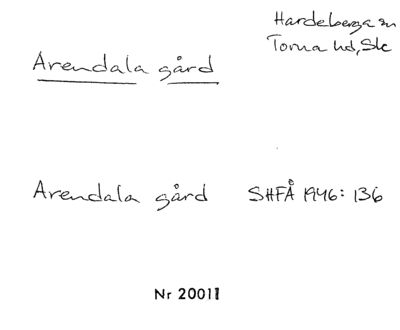 Hardeberga sn
Torna hd, Sk
Arendala gård
Arendala gård SHFÅ 1946: 136
Nr 20011